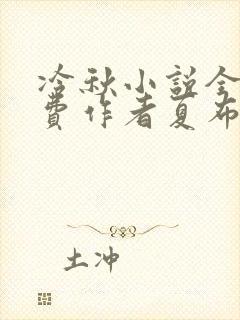 冷秋小说全
费作者夏布
土冲